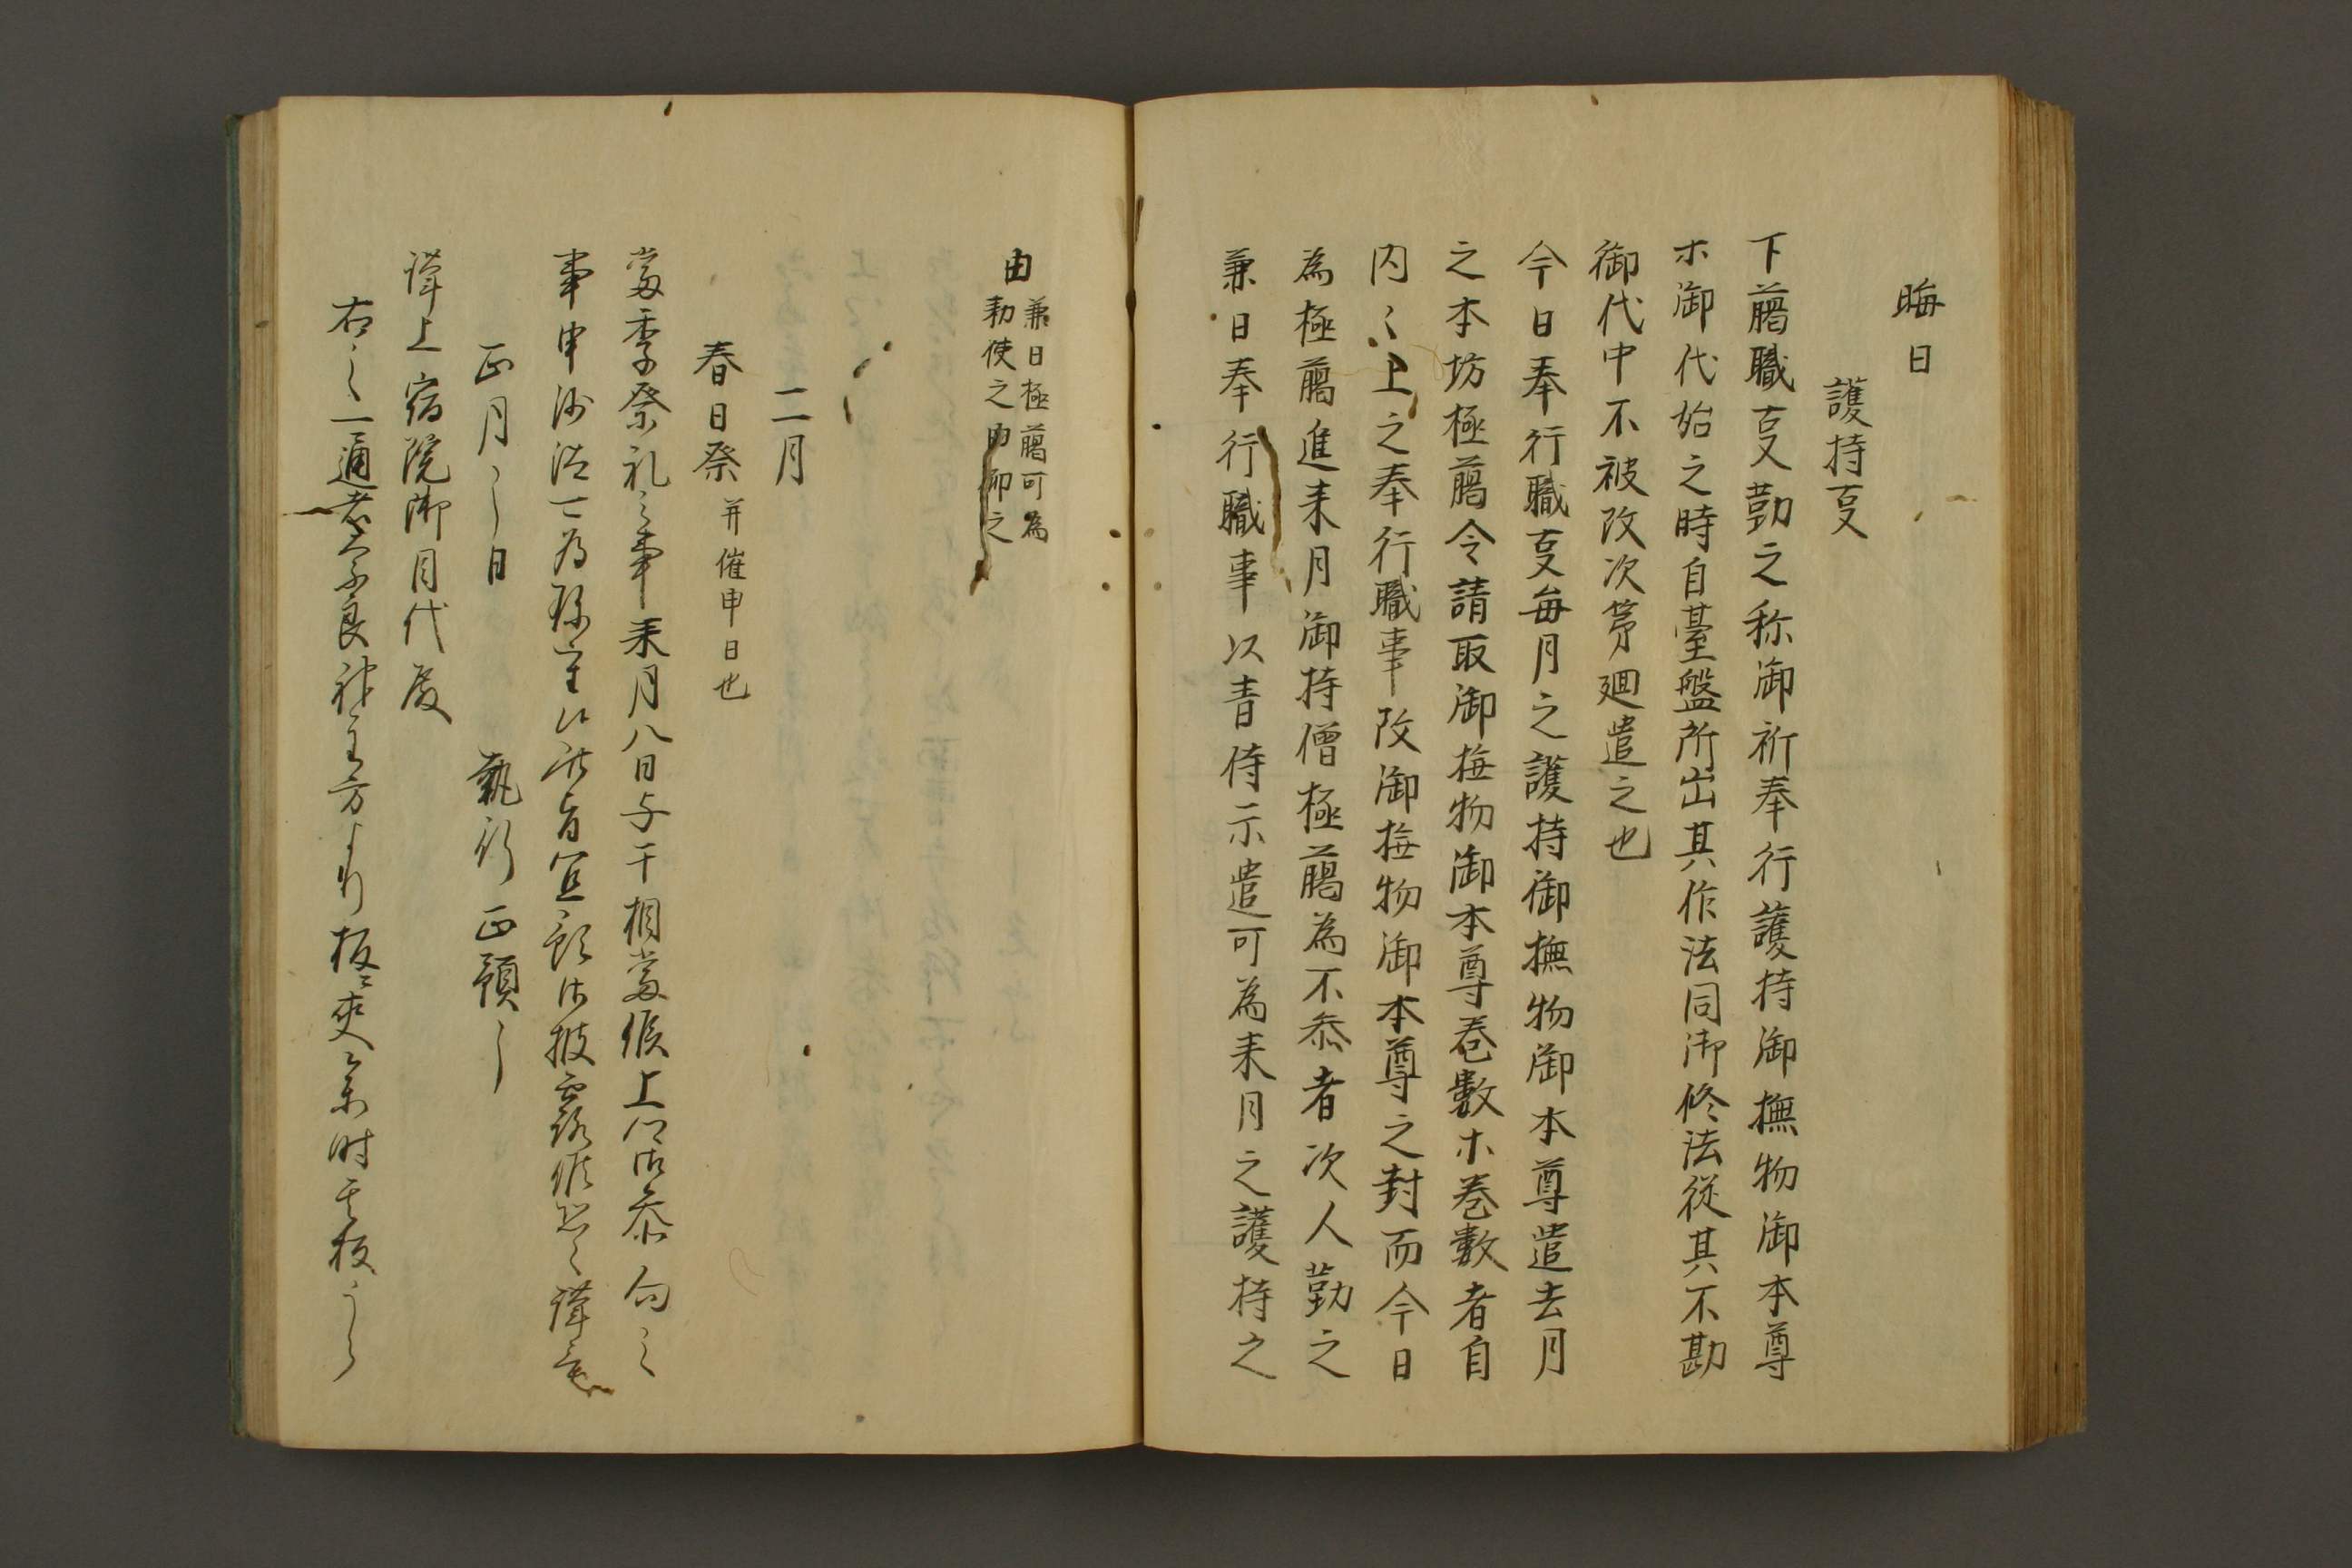 晦日
護持㕝
下﨟職㕝勤之称御祈奉行護持御撫物御本尊
ホ御代始之時自臺盤所出其作法同御修法従其不勘
御代中不被改次第廻遣之也
今日奉行職㕝毎月之護持御撫物御本尊遣去月
之本坊極﨟令請取御撫物御本尊巻數ホ巻數者自
内〻上之奉行職事改御撫物御本尊之封而今日
為極﨟進来月御持僧極﨟為不参者次人勤之
兼日奉行職事以青侍示遣可為来月之護持之
由兼日極﨟可為
勅使之由仰之
二月
春日祭并催申日也
當季祭礼之事来月八日与干相當候上ハ御参向之
事申沙汰可為珎重候此旨宜預御披露候恐〻謹言
正月〻日 執行正預〻
謹上 宿院御目代殿
右之一通者奈良神主方より板挟ニ来時其板